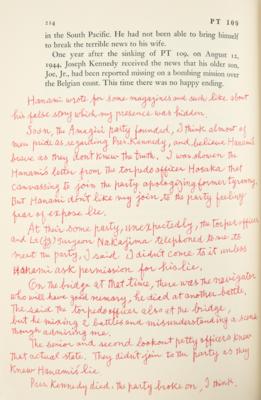 224 PT 109
in the South Pacific. He had not been able to bring himself
to break the terrible news to his wife.
One year after the sinking of PT 109, on August 12,
1944, Joseph Kennedy received the news that his older son,
Joe, Jr., had been reported missing on a bombing mission over
the Belgian coast. This time there was no happy ending.
Hanami wrote for some magazines and such like about
his false story which my presence was hidden.
Soon, the Amagiri party founded, I think almost of
men pride as regarding Pres. Kennedy, and believe Hanami
brave as they don't knew the truth. I was shown the
Hanami's letter from the torpedo officer Hosaka that
canvassing to join the party apologizing former tyranny.
But Hanami don't like my join to the party feeling
fear of expose lie.
At their some party, unexpectedly, the torper officer
and Lt. (jg) Surgeon Nakajima telephoned to me to
meet the party, I said I didn't come to it unless
Hanami ask permission for his lie.
On the bridge at that time, there was the navigator
who will have good memory, he died at another battle.
The said the torpedo officer also at the bridge,
but he mixing 2 battles and misunderstanding a scene
though admiring me.
The senior and second lookout petty officers knew
that actual state. They didn't join to the party as they
knew Hanami's lie.
Pres. Kennedy died, the party broke on, I think.